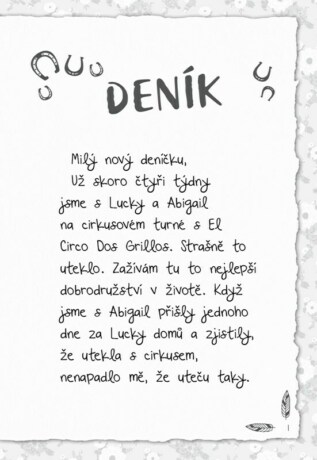 DENÍK
Milý nový deníčku,
Už skoro čtyři týdny
jsme s Lucky a Abigail
na cirkusovém turné s El
Circo Dos Grillos. Strašně to
uteklo. Zažívám tu to nejlepší
dobrodružství v životě. Když
jsme s Abigail přišly jednoho
dne za Lucky domů a zjistily,
že utekla s cirkusem,
nenapadlo mě, že uteču taky.